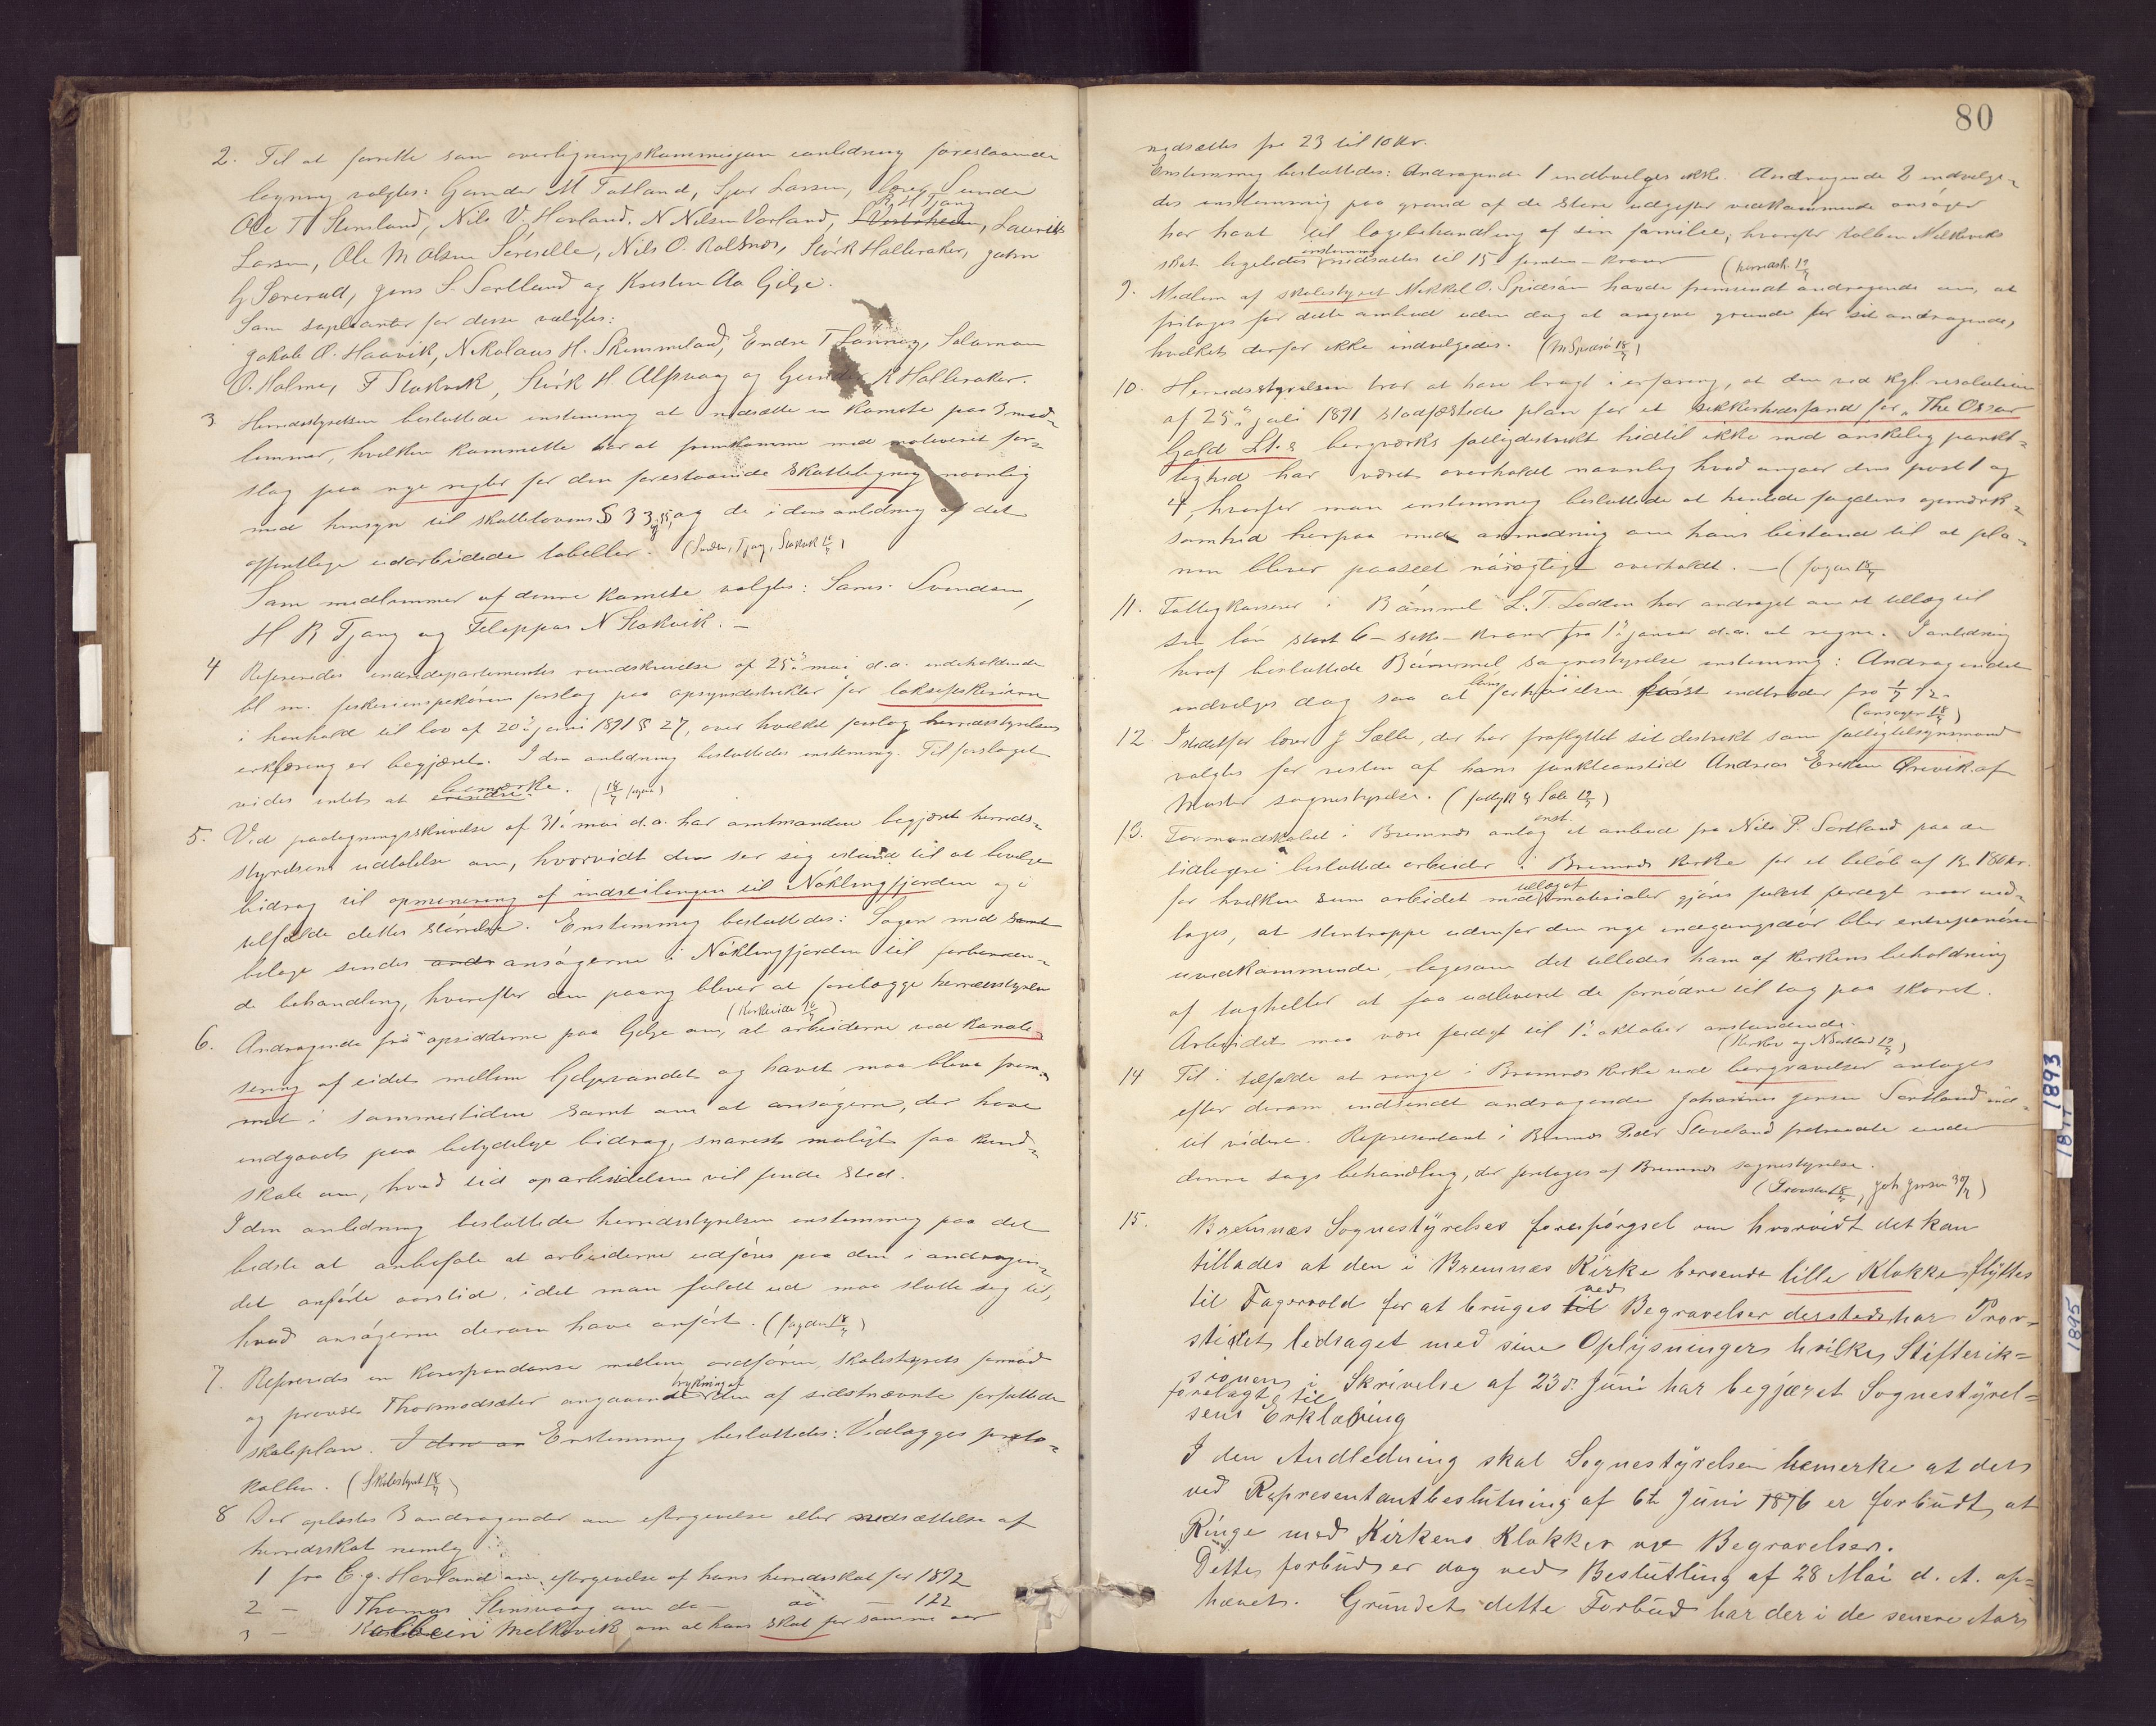 2. Til at forrette som overligningskommisjon i anledning forestaaende
ligning valgtes: Gunder M Totland, Sjur Larsen, Sunde
R H Tjong
Ole T Stensland, Nils V. Hovland, N Nilsen Vorland, Laurits
Larsen, Ole M Olsen Sörselle, Nils O. Rolsnes, Störk Halleraker, John
G. Særevold, Jens S. Sortland og Kristen Aa Gilje.
Som suplianter for disse valgtes:
Jakob O. Haavik, Nikolaus H. Skimmeland, Endre T Lönning, Salamon
O. Holme, F Stokvik, Störk H. Alfsvaag og Gunder R Halleraker.
3 Herredsstyrelsen besluttede enstemmig at nedsætte en komite paa 3 med-
lemmer, hvilken kommitte har at fremkomme med motiveret for-
slag paa nye regler for den forestaaende skatteligning navnlig
med hensyn til skattelovens § 33 og de i den anledning af det
offentlige udarbeidede tabeller. (Svends, Tjong, Stokvik 18/7)
Som medlemmer af denne komite valgtes: Sams. Svendsen,
H R Tjong og Filippus N Stokvik. –
4 Refereredes indredepartementets rundskrivelse af 25de mai d.a. indeholdende
bl. m. fiskeriinspektörens forslag paa opsynsdistrikter for laksefiskerierne
i henhold til lov af 20de juni 1891 § 27, over hvilket forslag herredsstyrelsens
erklæring er begjæret. I den anledning besluttedes enstemmig. Til forslaget
vides intet at erindre bemærke. (18/7 fogden)
5. Ved paategningsskrivelse af 31. mai d.a. har amtmanden begjæret herreds-
styrelsens udtalelse om, hvorvidt den ser sig istand til at bevilge
bidrag til opmerering af indseilingen til Nöklingfjorden og i
tilfælde dettes störrelse. Enstemmig besluttedes: Sagen med samt
bilage sendes andr ansögerne i Nöklingfjorden til forberedende
de behandling, hvorefter den paany bliver at forelægge herredsstyrelsen
(Kirkeide 16/7)
6. Andragende frå opsidderne paa Gilje om, at arbeiderne ved kanali-
sering af eidet mellem Giljevandet og havet maa blive frem-
met i sommertiden samt om at ansögerne, der have
indgaaet paa betydelige bidrag, snarest muligt faa kund-
skab om, hvad tid oparbeidelsen vil finde sted.
I den anledning besluttede herredsstyrelsen enstemmig paa det
bedste at anbefale at arbeiderne udföres paa den i andragen-
det anförte aarstid, idet man fuldt ud maa slutte sig til,
hvad ansögerne derom have anfört. (fogden 18/7)
7. Refereredes en korrespondanse mellem ordfören, skolestyrets formand
og provst Thormodsæter angaaende trykning af den af sidstnævnte forfattede
skoleplan. I den an Enstemmig besluttedes: Vedlægges proto-
kollen. (Skolestyret 18/7)
8 Der oplæstes 3 andragender om eftergivelse eller nedsættelse af
herredsskat nemlig:
1 fra E. J. Hovland om eftergivelse af hans herredsskat for 1892
2 – Thomas Stensvaag om do – do – 122
3 – Kolbein Melkevik om at hans skat for samme aar
80
nedsættes fra 23 til 10 kr.
Enstemmig besluttedes: Andragende 1 indbevilges ikke. Andragende 2 indvilge-
des enstemmig paa grund af de store udgifter vedkommende ansöger
har havt til lægebehandling af sin familie, hvorefter Kolben Melkeviks
skat ligeledes enstemmig nedsættes til 15 – femten – kroner (herredsk. 19/7
9. Medlem af skolestyret Mikkel O. Spidsön havde fremsendt andragende om, at
fritages for dette ombud uden dog at angive grunde for sit andragende,
hvilket derfor ikke indvilgedes. (M Spidsö 18/7)
10. Herredsstyrelsen tror at have bragt i erfaring, at den ved kgl. resolution
af 25de juli 1891 stadfæstede plan for et sikkerhedsfond for „The Oscar
Gold Lt.s bergværks fattigdistrikt hidtil ikke med önskelig punkt-
lighed har været overholdt navnlig hvad angaar dens post 1 og
4, hvorfor man enstemmig besluttede at henlede fogdens opmærk-
somhed herpaa med anmodning om hans bistand til at pla-
nen bliver paaseet nöiagtigt overholdt. – (fogden 18/7
11. Fattigkasserer i Bömmel L. T. Lodden har andraget om et tillæg til
sin lön stort 6 – seks – kroner fra 1ste januar d.a. at regne. I anledning
heraf besluttede Bömmel sognestyrelse enstemmig: Andragendet
indvilges dog saa at lönsforhöielsen först indtræder fra 1/7 92
(ansöger 18/7)
12. Istedetfor lærer J Sælle, der har fraflyttet sit distrikt som fattigtilsynsmand
valgtes for resten af hans funktionstid Andreas Eriksen Örevik af
Moster sognestyrelse. (fattigk. J Sæle 19/7)
13. Formandskabet i Bremnes antog enst. et anbud fra Nils P. Sortland paa de
tidligere besluttede arbeider i Bremnes kirke for et belöb af kr. 180 kr.
for hvilken sum arbeidet med tillæg af materialer gjöres fuldt færdigt naar und-
tages, at stentrappe udenfor den nye indgangsdör blir entreprenören
uvedkommende, ligesom det tillades ham af kirkens beholdning
af tagheller at faa udleveret de fornödne til tag paa skuret.
Arbeidet maa være færdigt til 1ste oktober anstundende.
(Kirkev og N Sortland 19/7)
14 Til i tilfælde at ringe i Bremnes kirke ved begravelser antoges
efter derom indsendt andragende Johannes Jensen Sortland ind-
til videre. Repræsentant i Bremnes Peder Staveland fratraadte under
denne sags behandling, der foretages af Bremnes sognestyrelse.
(Provsten 18/7, Joh Jensen 30/7)
15. Bremnæs Sognestyrelses forespörgsel om hvorvidt det kan
tillades at den i Bremnæs Kirke beroende lille Klokke flyttes
til Fagervold for at bruges til ved Begravelser dersteds, har Prov-
stiet ledsaget med sine Oplysninger, hvilke Stiftsdirek-
sionen i Skrivelse af 23d. Juni har begjæret Sognestyrel-
forelagt til
sens Erklæring
I den Andledning skal Sognestyrelsen bemerke at det
ved Representantbeslutning af 6te Juni 1876 er forbudt at
Ringe med Kirkens Klokker ved Begravelser.
Dette forbud er dog ved Beslutting af 28 Mai d. A. op-
hævet. Grundet dette Forbud har der i de senere Aar
1893
1895